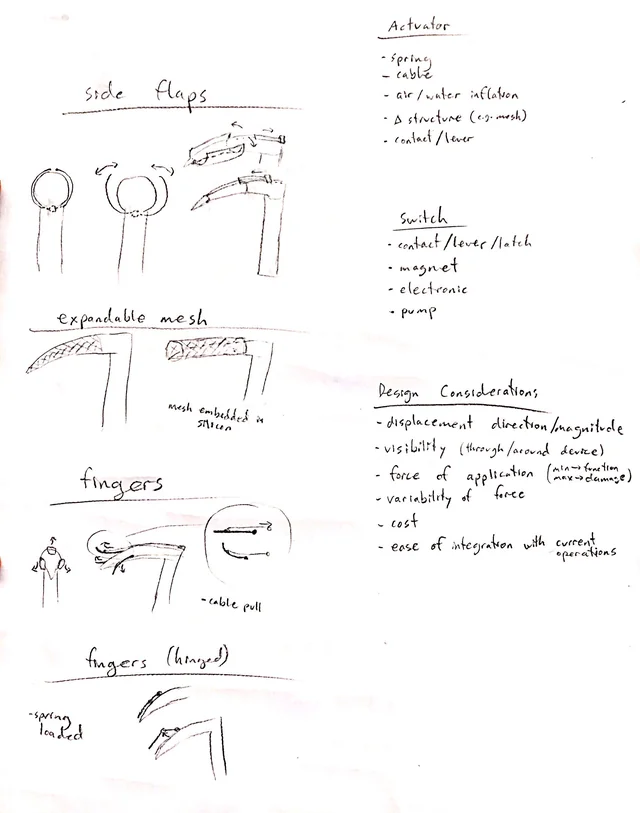 side flaps
expandable mesh
mesh embedded in
silicon
fingers
- cable pull
fingers (hinged)
- spring
loaded
Actuator
- spring
- cable
- air/water inflation
- Δ structure (e.g. mesh)
- contact/lever
Switch
- contact/lever/latch
- magnet
- electronic
- pump
Design Considerations
- displacement direction/magnitude
- visibility (through/around device)
- force of application (min → function
max → damage)
- variability of force
- cost
- ease of integration with current
operations